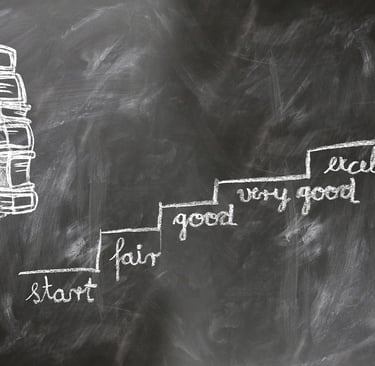 start
fair
good
very good
excel